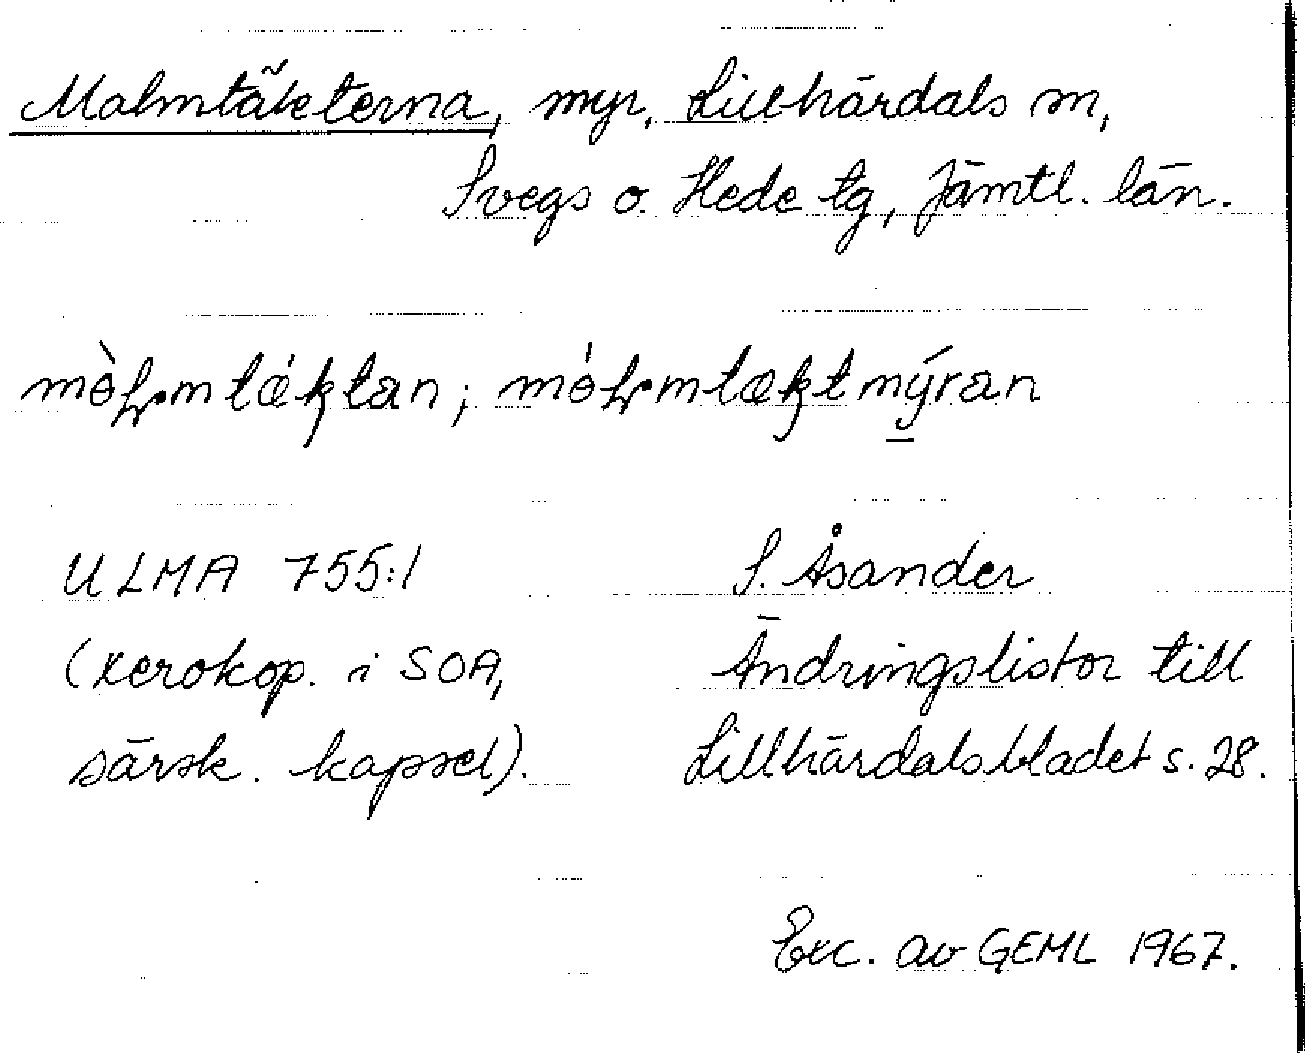 Malmtäkterna, myr, Lillhärdals sn,
Svegs o. Hede tg, Jämtl. län.
mòḷmtǽktan; móḷmtæktmýran
ULMA 755:1
S. Åsander
(xerokop. i SOA,
Ändringslistor till
särsk. kapsel).
Lillhärdalsbladet s. 28.
Exc. av GEML 1967.